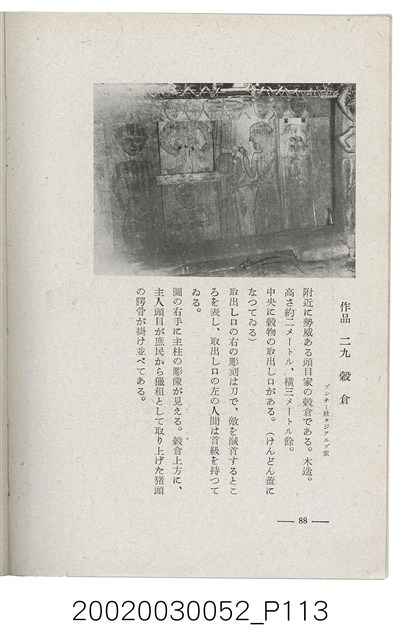 作品 二九 穀倉
ブンチー社タジアルプ家
附近に勢威ある頭目家の穀倉である。木造。
高さ約二メートル、横三メートル餘。
中央に穀物の取出し口がある。(けんどん蓋に
なつてゐる)
取出し口の右の彫刻は刀で、敵を馘首するとこ
ろを表し、取出し口の左の人間は首級を持つて
ゐる。
圖の右手に主柱の彫像が見える。穀倉上方に、
主人頭目が庶民から獵租として取り上げた猪頭
の腭骨が掛け並べてある。
— 88 —
20020030052_P113